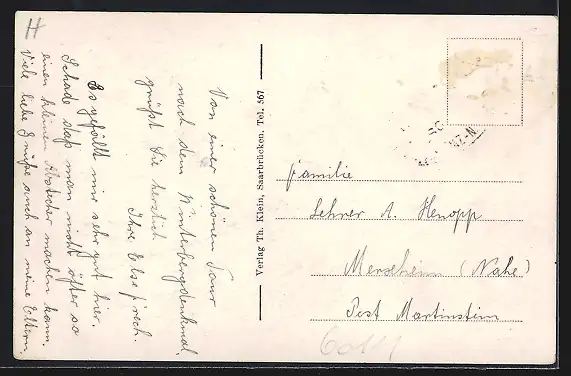 H
Von einer schönen Tour
nach dem Winterbergdenkmal
grüßt Sie herzlich
Ihre Else
Es gefällt mir sehr gut hier.
Schade daß man nicht öfter so
einen kleinen Abstecher machen kann.
Viele liebe Grüße auch an meine Eltern.
Verlag Th. Klein, Saarbrücken. Tel. 567
Familie
Lehrer A. Henopp
Merxheim (Nahe)
Post Martinstein